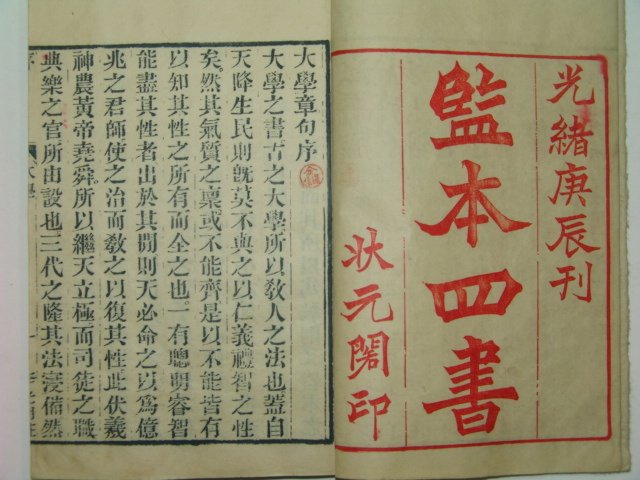 光緒庚辰刊
監本四書
狀元閣印
大學章句序
大學之書古之大學所以敎人之法也蓋自
天降生民則旣莫不與之以仁義禮智之性
矣然其氣質之稟或不能齊是以不能皆有
以知其性之所有而全之也一有聰明睿智
能盡其性者出於其閒則天必命之以爲億
兆之君師使之治而敎之以復其性此伏羲
神農黃帝堯舜所以繼天立極而司徒之職
典樂之官所由設也三代之隆其法寖備然